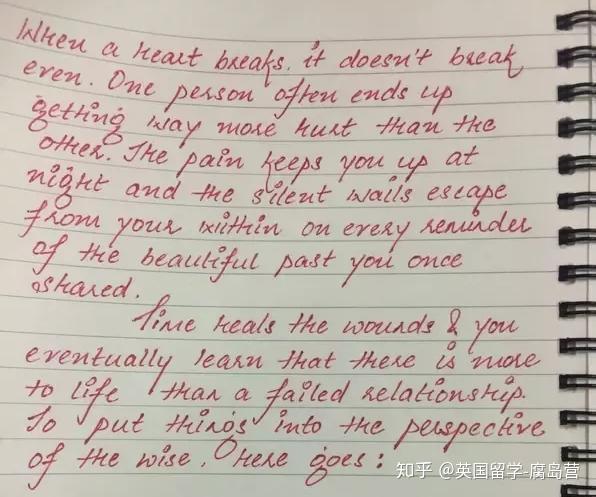 When a heart breaks, it doesn't break
even. One person often ends up
getting way more hurt than the
other. The pain keeps you up at
night and the silent wails escape
from your within on every reminder
of the beautiful past you once
shared.
Time heals the wounds & you
eventually learn that there is more
to life than a failed relationship.
To put things into the perspective
of the wise, here goes:
知乎 @英国留学-腐岛营